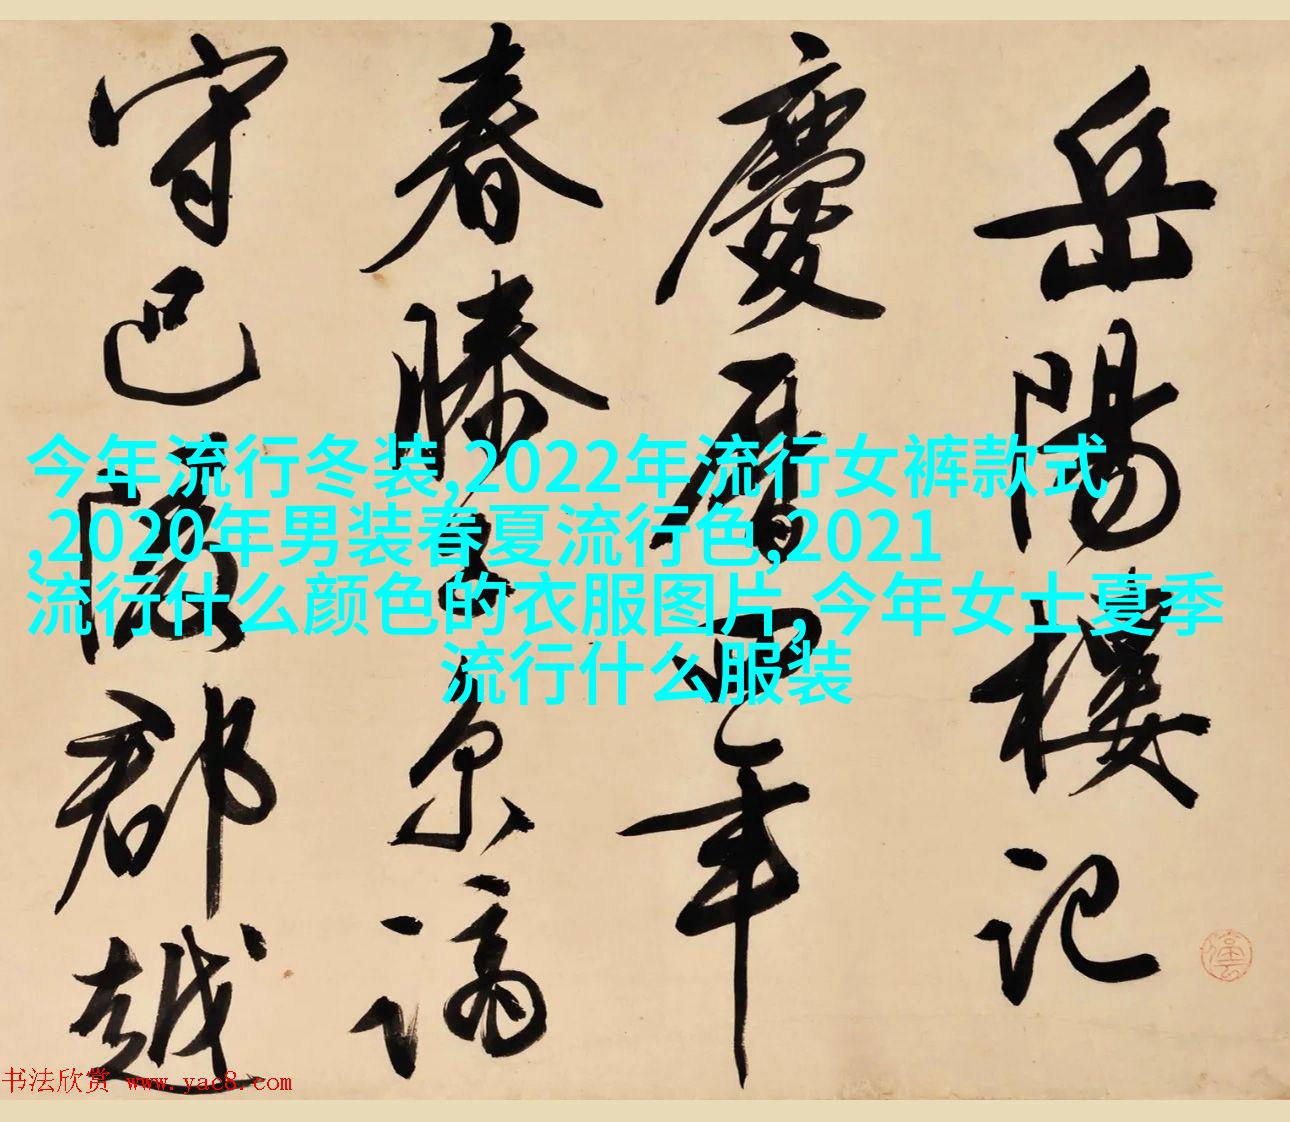 岳陽樓記
慶曆四年
春滕子京謫
守巴陵郡越
今年流行冬装,2022年流行女裤款式
,2020年男装春夏流行色,2021
流行什么颜色的衣服图片, 今年女士夏季
流行什么服装
书法欣赏 www.yac8.com